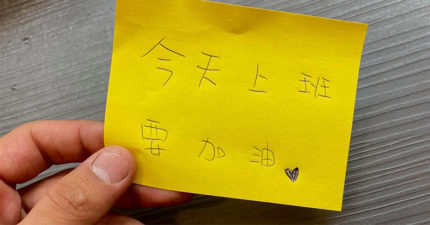 今天上班
要加油♥